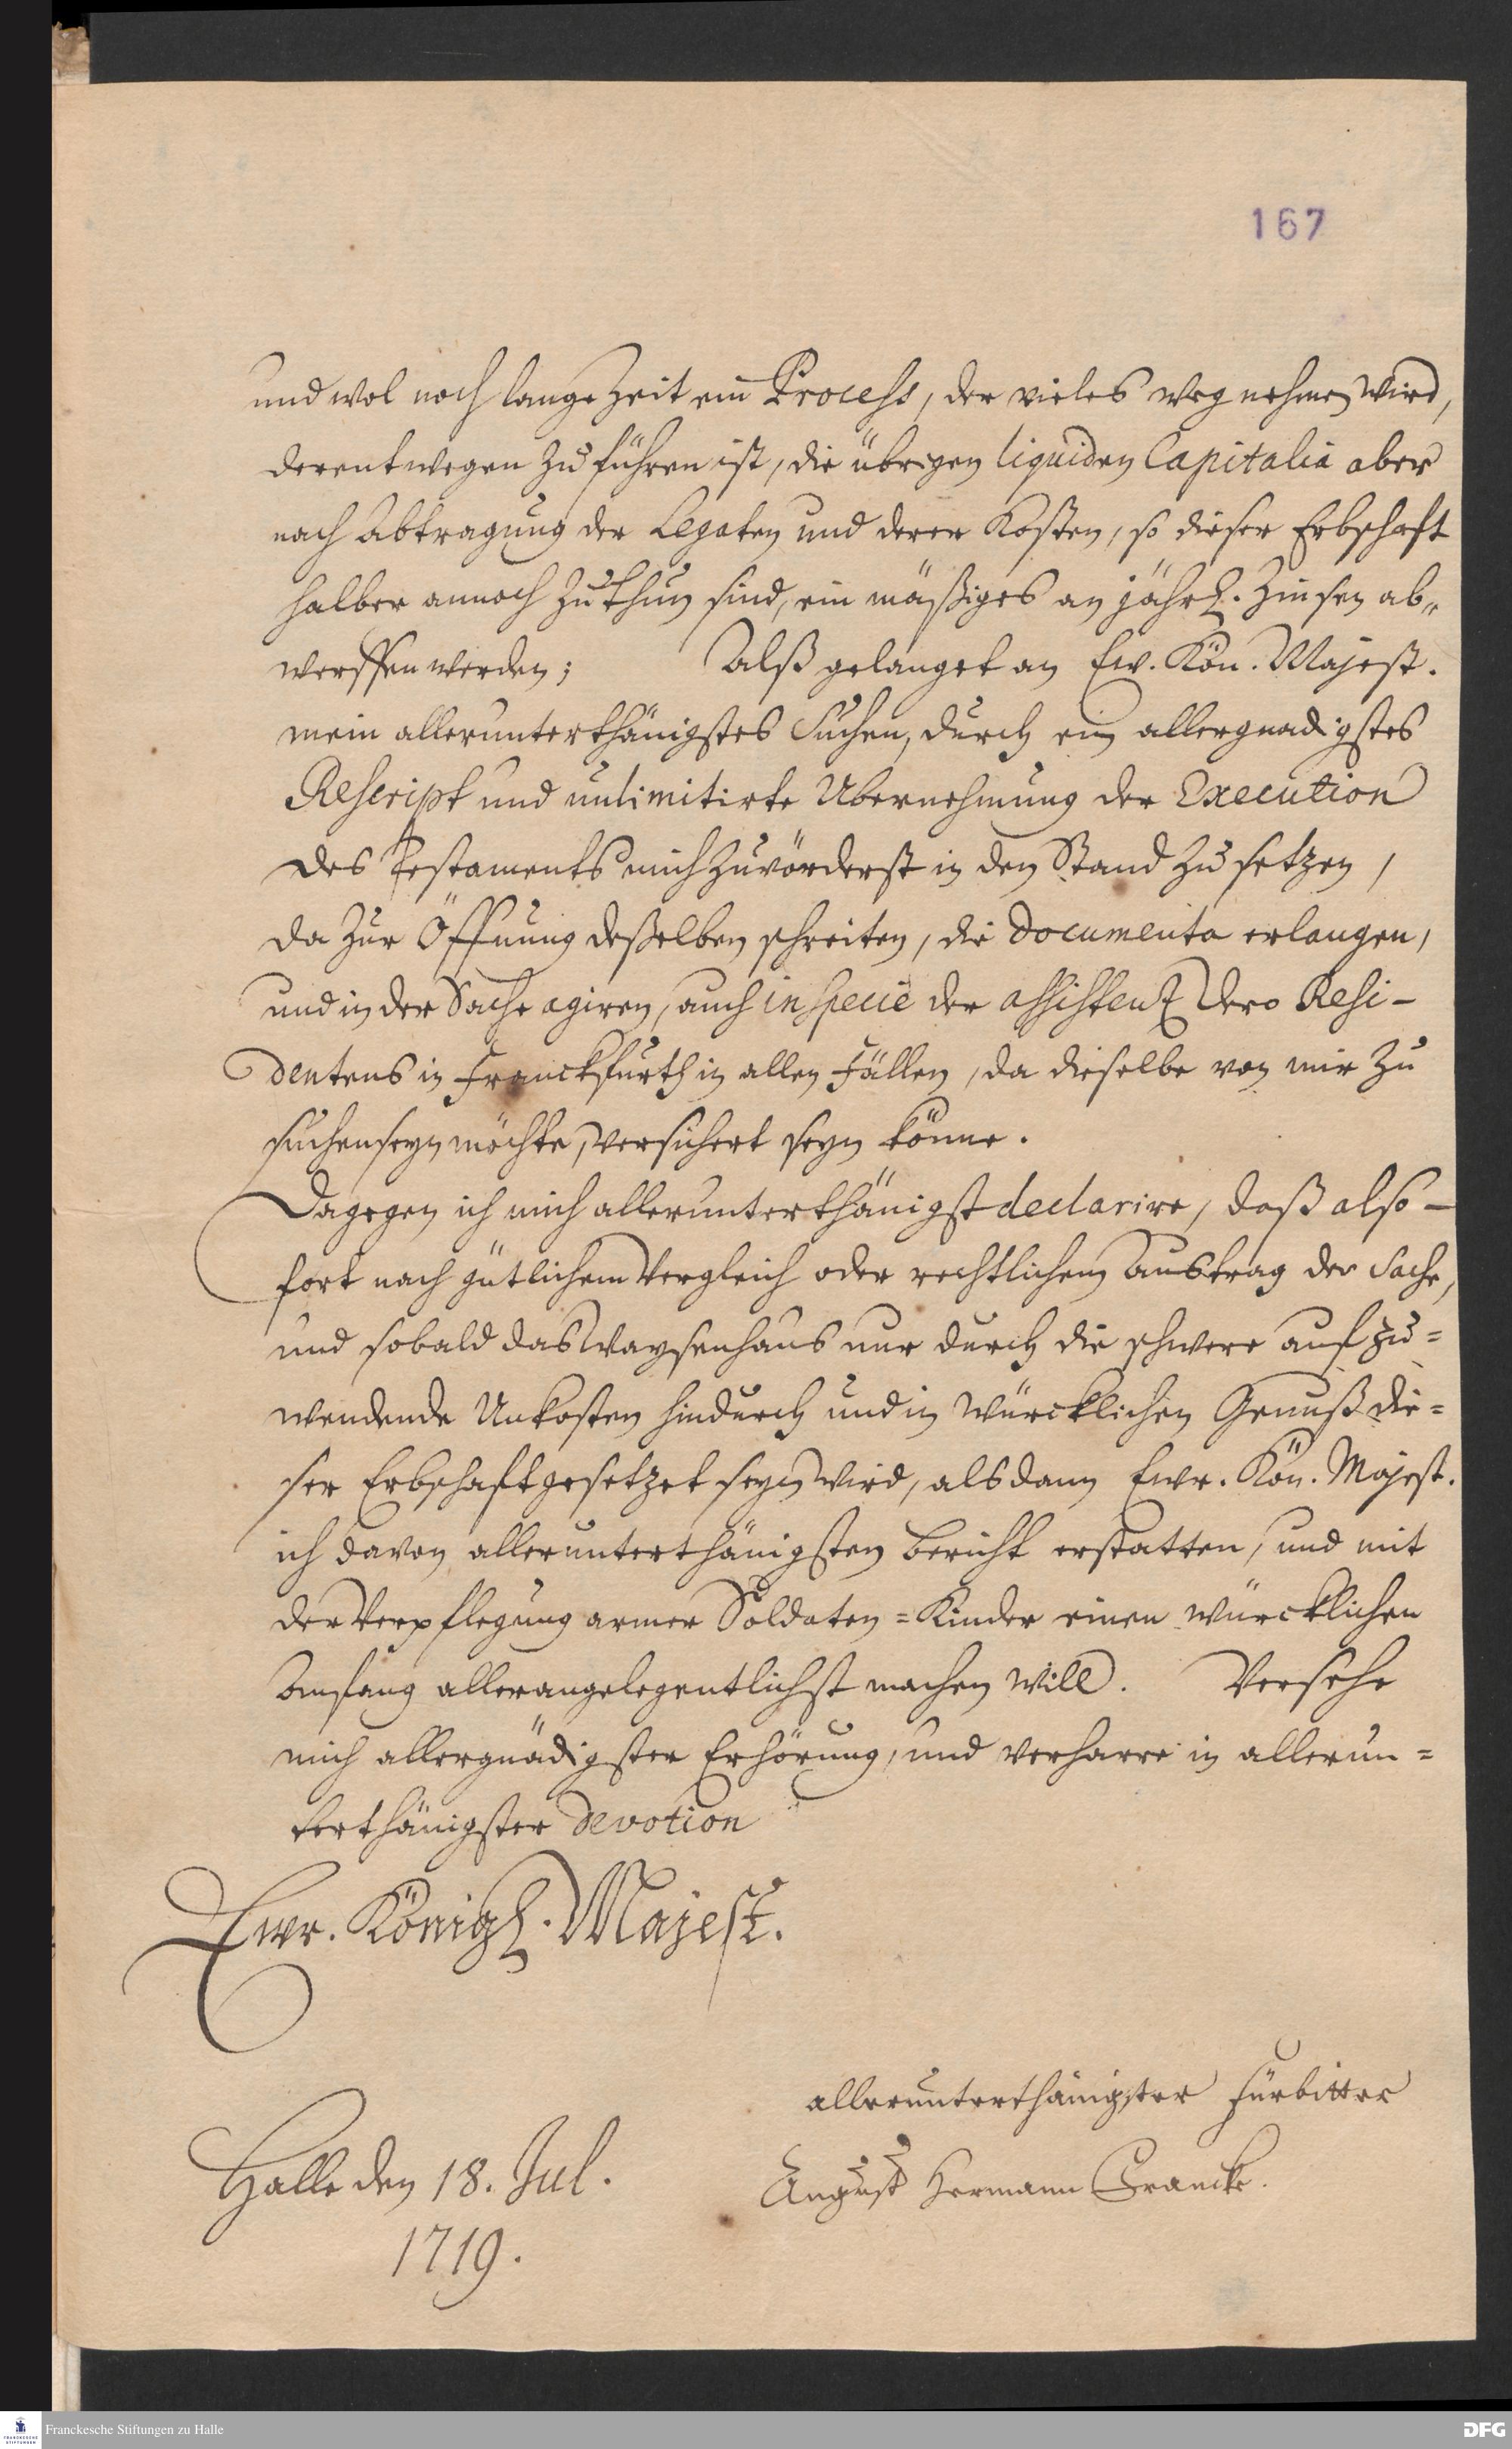 167
und wol noch lange Zeit ein Process, der vieles weg nehmen wird,
derentwegen zu führen ist, die übrigen liquiden Capitalia aber
nach Abtragung der Legaten und derer Kosten, so dieser Erbschaft
halber annoch zu thun sind, ein mäßiges an jährl. Zinsen ab„
werffen werden; Alß gelanget an Ew. Kön. Majest.
mein allerunterthänigstes Suchen, durch ein allergnadigstes
Rescript und unlimitirte Ubernehmung der Execution
des Testaments mich zuvörderst in den Stand zu setzen,
da zur Öffnung deßelben schreiten, die Documenta erlangen,
und in der Sache agiren, auch in specie der assistentz Dero Resi-
dentens in Franckfurth in allen Fällen, da dieselbe von mir zu
suchen seyn möchte, versichert seyn könne.
Dagegen ich mich allerunterthänigst declarire, daß also-
fort nach gütlichem Vergleich oder rechtlichem Austrag der Sache,
und sobald das Waysenhaus nur durch die schwere aufzu=
wendende Unkosten hindurch und in würcklichen Genuß die=
ser Erbschaft gesetzet seyn wird, alsdann Ewr. Kön. Majest.
ich davon allerunterthänigsten Bericht erstatten, und mit
der Verpflegung armer Soldaten=Kinder einen würcklichen
Anfang allerangelegentlichst machen will. Versehe
mich allergnädigster Erhörung, und verharre in allerun=
terthänigster Devotion
Ewr. Königl. Majest.
allerunterthänigster Fürbitter
Halle den 18. Jul. August Hermann Francke.
1719.
Franckesche Stiftungen zu Halle
DFG